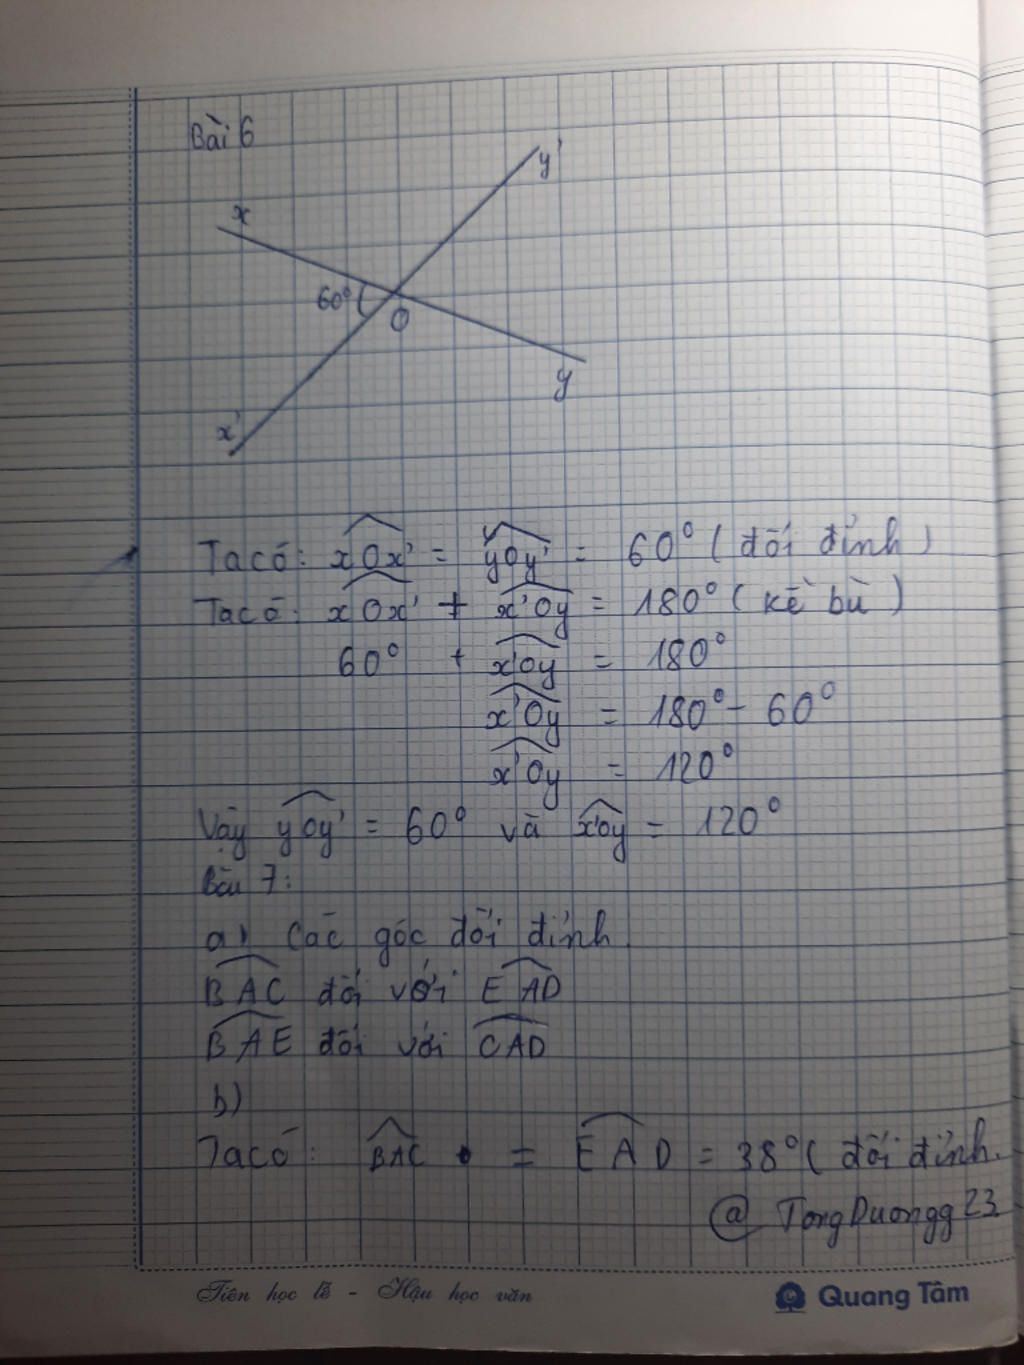 Bài 6
y'
x
60°
O
y
x'
Ta có: xOx' = yOy' = 60° ( đối đỉnh )
Ta có: xOx' + x'Oy = 180° ( kề bù )
60° + x'Oy = 180°
x'Oy = 180° - 60°
x'Oy = 120°
Vậy yOy' = 60° và x'Oy = 120°
Bài 7:
a) Các góc đối đỉnh
BAC đối với EAD
BAE đối với CAD
b)
Ta có: BAC = EAD = 38° ( đối đỉnh.
@ TongDuongg23
Tiên học lễ - Hậu học văn
Quang Tâm